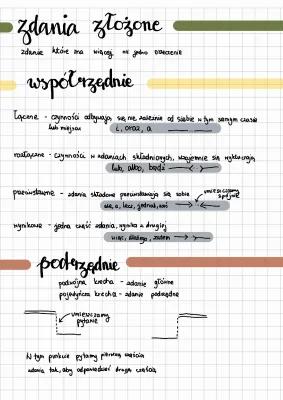 zdania złożone
zdanie które ma więcej niż jedno orzeczenie
współrzędnie
łączne - czynności odbywają się nie zależnie od siebie w tym samym czasie
lub miejscu
i, oraz, a
rozłączne - czynności w zdaniach składowych, wzajemnie się wykluczają
lub, albo, bądź
przeciwstawne - zdania składowe przeciwstawiają się sobie
umieszczamy
spójnik
ale, a, lecz, jednak,
wynikowe - jedna część zdania, wynika z drugiej
więc, dlatego, zatem
podrzędnie
podwójna kreska - zdanie główne
pojedyńcza kreska - zdanie podrzędne
umieszczamy
pytanie
W tym punkcie pytamy pierwszą częścią
zdania tak, aby odpowiedzieć drugą częścią